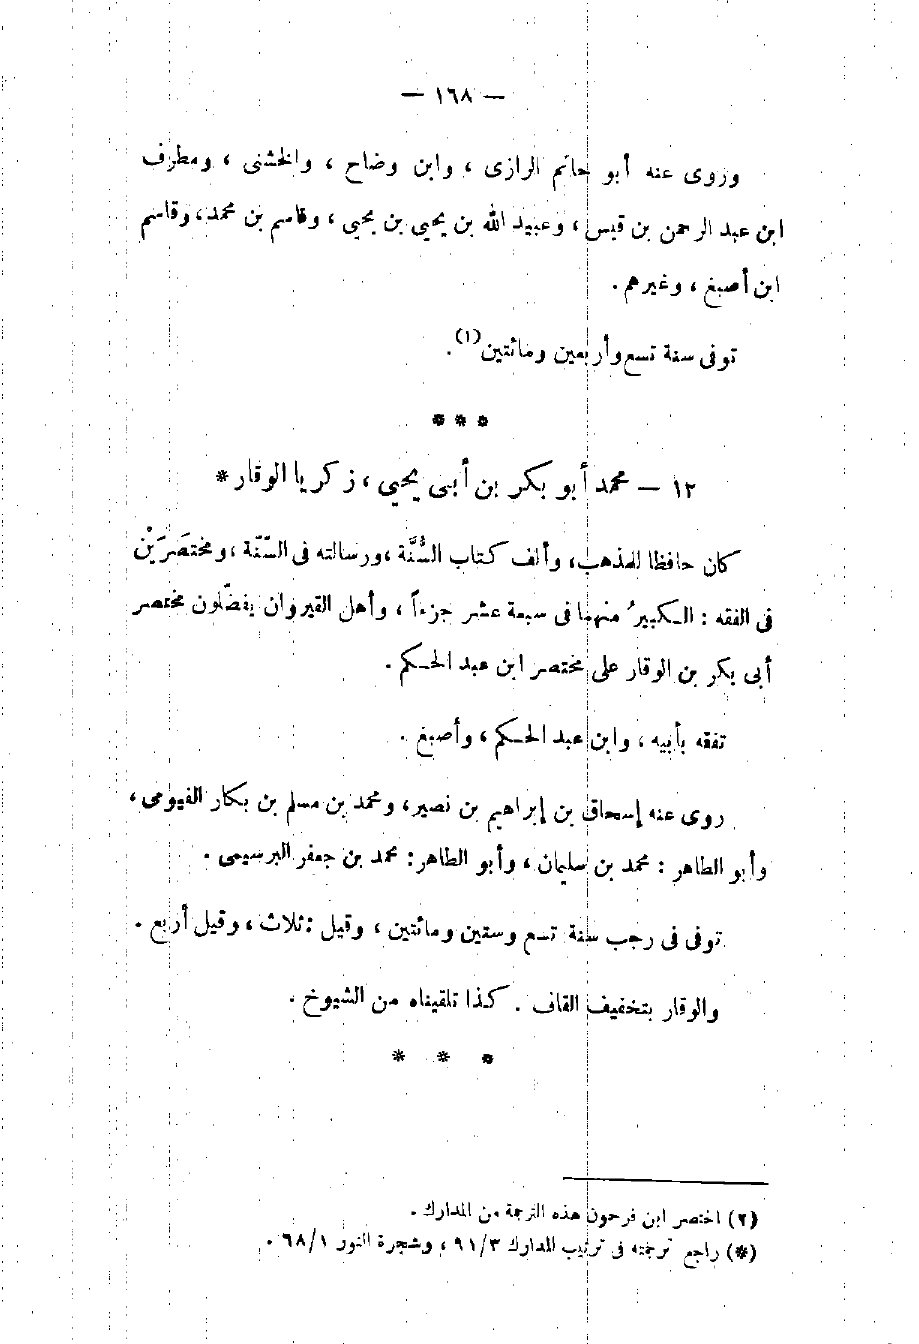 — ١٦٨ —
وروى عنه أبو حاتم الرازى ، وابن وضاح ، والخشنى ، ومطرف
ابن عبد الرحمن بن قيس ، وعبيد الله بن يحيى بن يحيى ، وقاسم بن محمد ، وقاسم
ابن أصبغ ، وغيرهم .
توفى سنة تسع وأربعين ومائتين(١) .
* * *
١٢ — محمد أبو بكر بن أبى يحيى ، زكريا الوقار *
كان حافظا للمذهب ، وألف كتاب السُّنَّة ، ورسالته فى السّنّة ، ومختصَرَيْن
فى الفقه : الكبيرُ منهما فى سبعة عشر جزءاً ، وأهل القيروان يفضّلون مختصر
أبى بكر بن الوقار على مختصر ابن عبد الحكم .
تفقه بأبيه ، وابن عبد الحكم ، وأصبغ .
روى عنه إسحاق بن إبراهيم بن نصير ، ومحمد بن مسلم بن بكار الفيومى ،
وأبو الطاهر : محمد بن سليمان ، وأبو الطاهر : محمد بن جعفر البرسيمى .
توفى فى رجب سنة تسع وستين ومائتين ، وقيل : ثلاث ، وقيل أربع .
والوقار بتخفيف القاف . كذا تلقيناه من الشيوخ .
* * *
(٢) اختصر ابن فرحون هذه الترجمة من المدارك .
(*) راجع ترجمته فى ترتيب المدارك ٩١/٣ ، وشجرة النور ٦٨/١ .